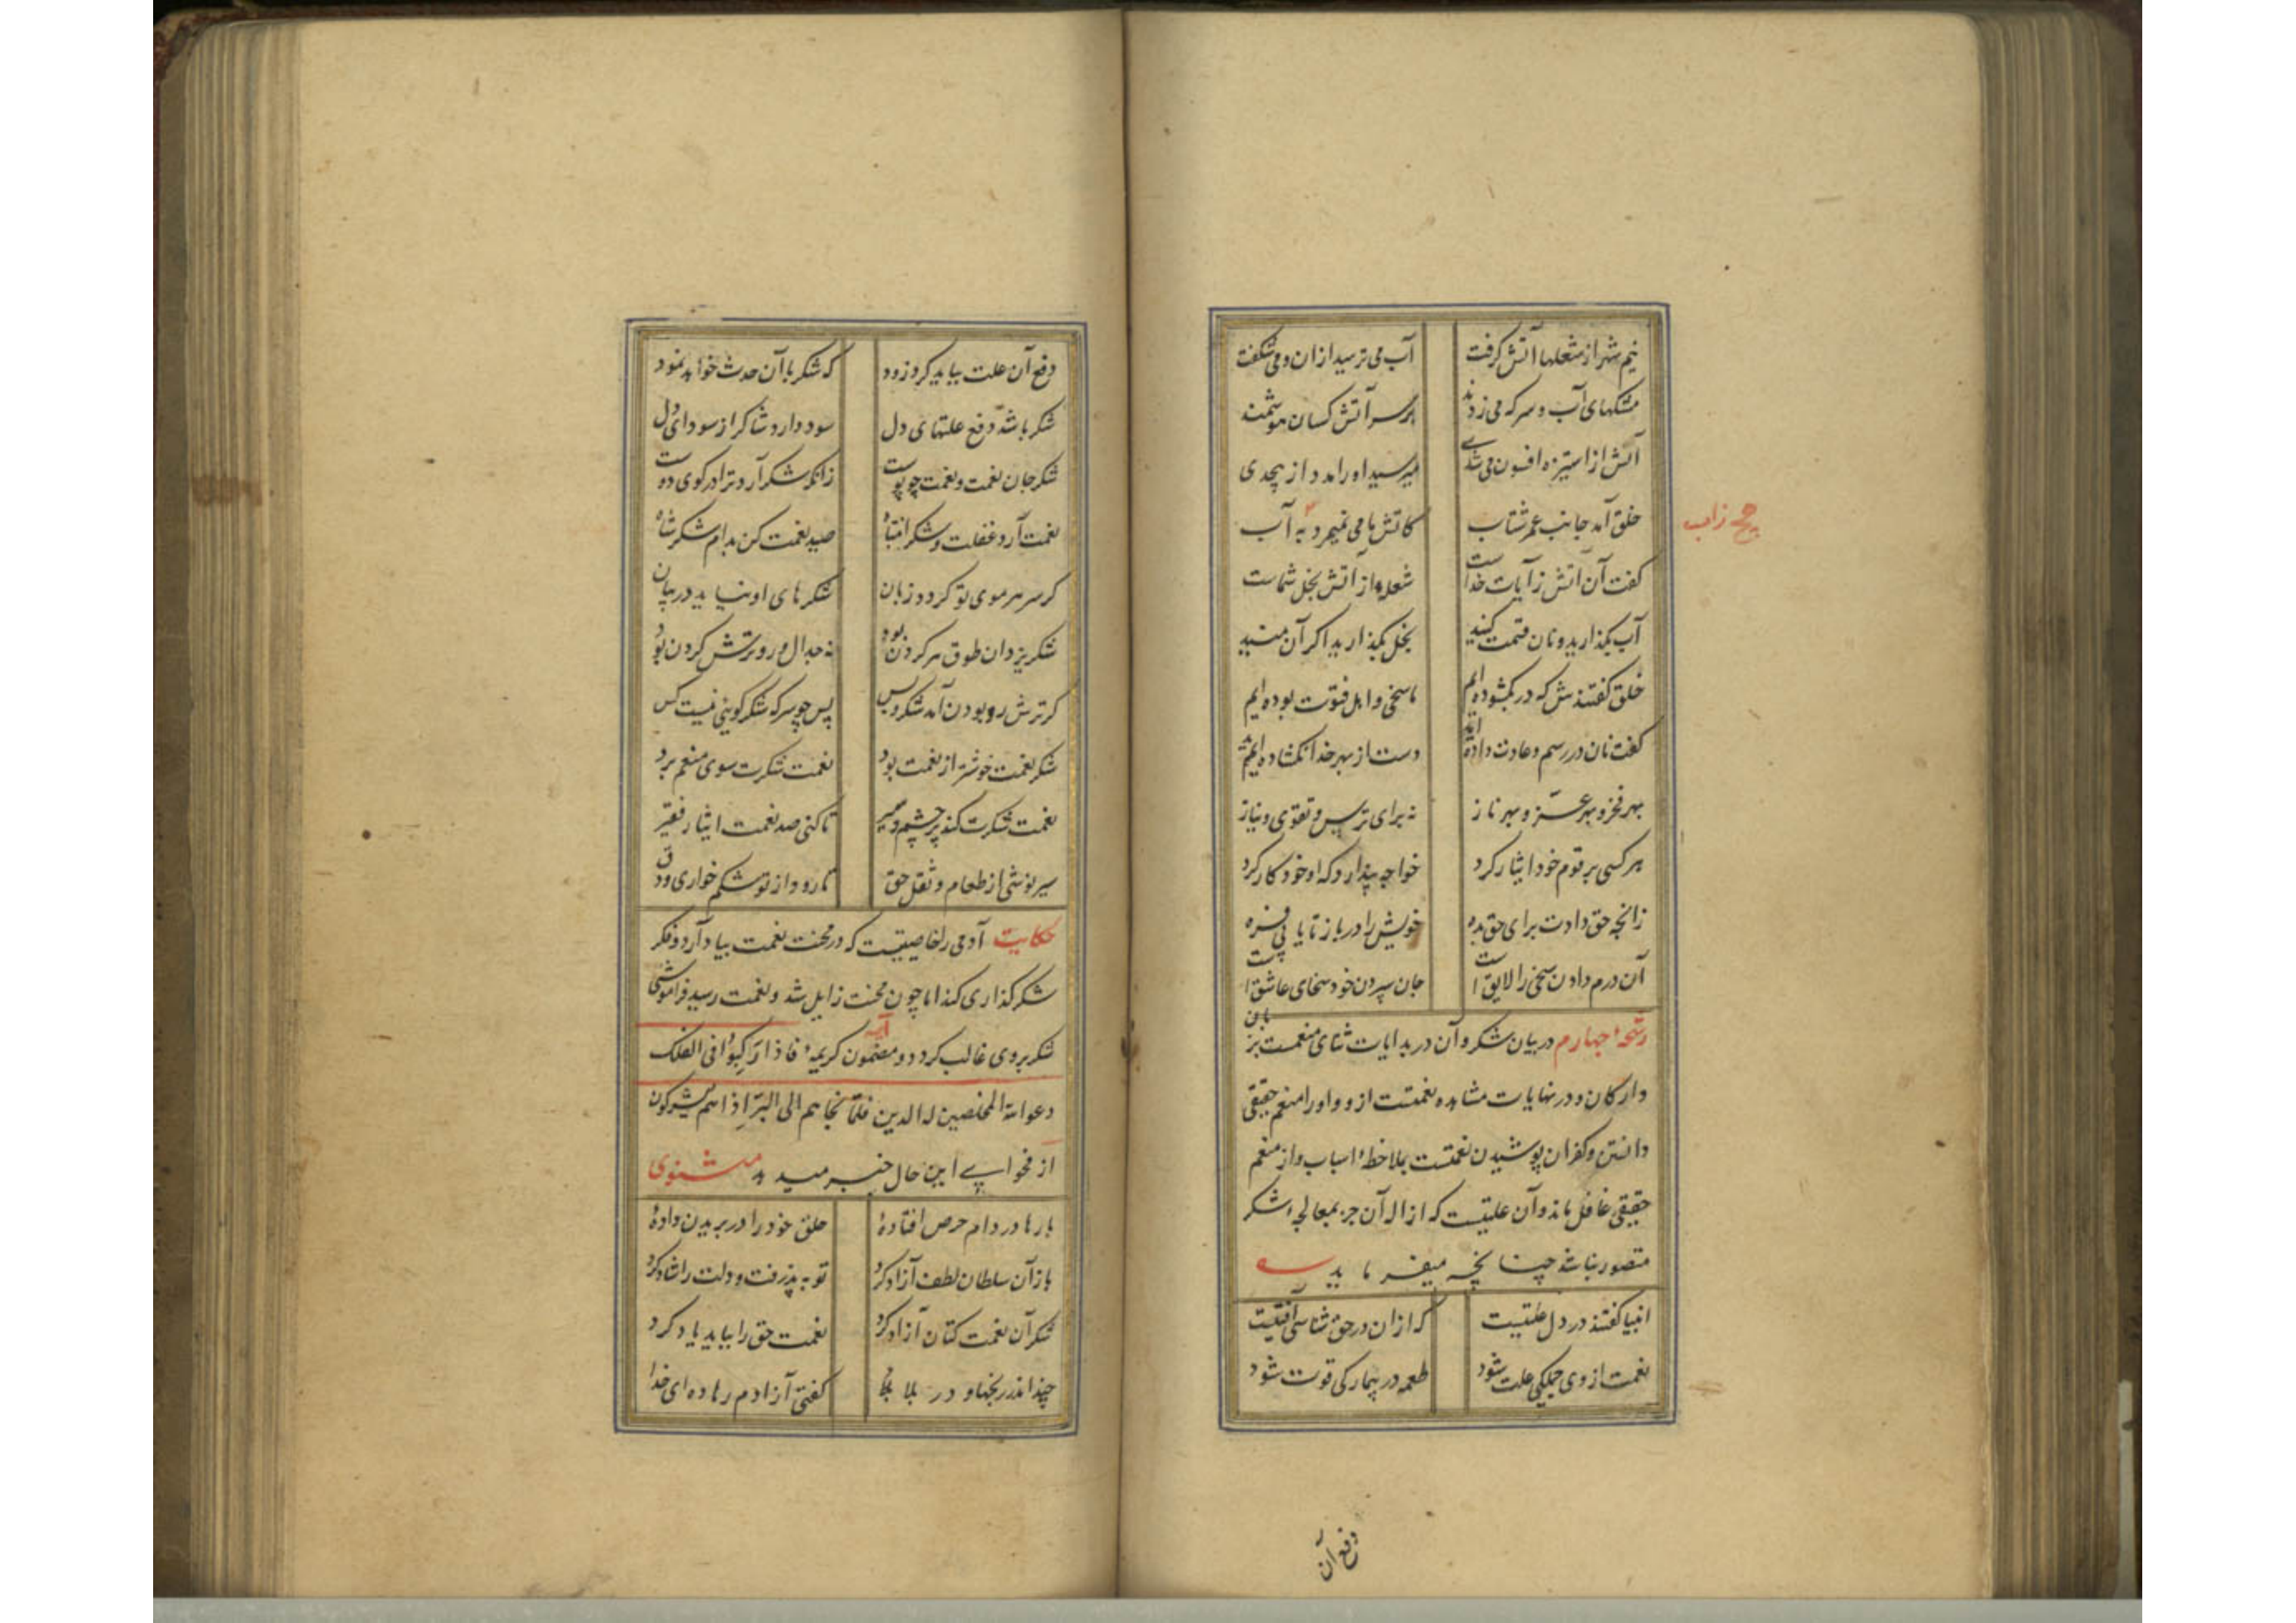 نیم شهر از شعلها آتش گرفت آب می ترسید ازان و می شکفت
مشکهای آب و سرکه می زدند بر سر آتش کسان هوشمند
آتش از استیزه افسون می شدی میرسید او را مدد از بیحدی
خلق آمد جانب عمر شتاب کاتش ما می نمیرد به آب
گفت آن آتش ز آیات خداست شعلۀ از آتش بخل شماست
آب بگذارید و نان قسمت کنید بخل بگذارید اگر آن منید
خلق گفتندش که در بگشوده ایم ما سخی و اهل فتوت بوده ایم
گفت نان در رسم و عادت داده اید دست از بهر خدا نگشاده اید
بهر فخر و بهر عز و بهر ناز نه برای ترس و تقوی و نیاز
هر کسی بر قوم خود ایثار کرد خواجه پندارد که او خود کار کرد
زانچه حق دادت برای حق بده خویش را در باز تا یابی فره
آن درم دادن سخی را لایق است جان سپردن خود سخای عاشق است
رشحۀ چهارم در بیان شکر و آن در بدایات ثنای منعمست بزبان
و ارکان و در نهایات مشاهده نعمتست ازو و او را منعم حقیقی
دانستن و کفران پوشیدن نعمتست بملاحظۀ اسباب و از منعم
حقیقی غافل ماند و آن علتیست که ازالۀ آن جز بمعالجۀ شکر
متصور نباشد چنانچه میفرماید
انبیا گفتند در دل علتیست که ازان در حق شناسی آفتیست
نعمت از وی جملگی علت شود طعمه در بیمار کی قوت شود
دفع آن
دفع آن علت بباید کرد زود که شکر با آن حدث خواهد نمود
شکر باشد دفع علتهای دل سود دارد شاکر از سودای دل
شکر جان نعمت و نعمت چو پوست زانکه شکر آرد ترا در کوی دوست
نعمت آرد غفلت و شکر انتباه صید نعمت کن بدام شکر شاه
گر سر هر موی تو گردد زبان شکرهای او نیاید در بیان
شکر یزدان طوق هر گردن بود نه جدال و رو ترش کردن بود
گر ترش رو بودن آمد شکر و بس پس چو سرکه شکرگویی نیست کس
شکر نعمت خوشتر از نعمت بود نعمت شکرت سوی منعم برد
نعمت شکرت کند پر چشم و میر تا کنی صد نعمت ایثار فقیر
سیر نوشی از طعام و نقل حق تا رود از تو شکم خواری و دق
حکایت آدمی را خاصیتیست که در محنت نعمت بیاد آرد و فکر
شکر گذاری کند اما چون محنت زایل شد و نعمت رسید فراموشی
شکر بر وی غالب گردد و مضمون کریمۀ آیه فاذا رکبوا فی الفلک
دعوا الله المخلصین له الدین فلما نجاهم الی البر اذا هم یشرکون
از فحوای این حال خبر میدهد مثنوی
بارها در دام حرص افتادۀ حلق خود را در بریدن دادۀ
باز آن سلطان لطف آزاد کرد توبه پذرفت و دلت را شاد کرد
شکر آن نعمت کتان آزاد کرد نعمت حق را بباید یاد کرد
چند اندر رنجها و در بلا گفتی آزادم رها ده ای خدا